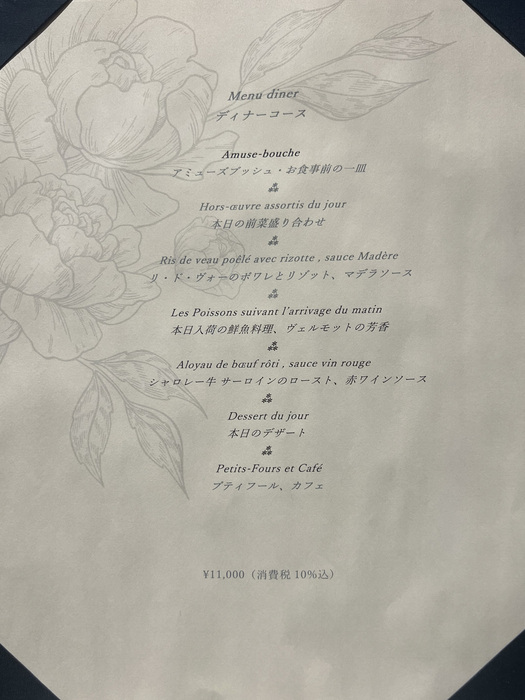 Menu dîner
ディナーコース
Amuse-bouche
アミューズブッシュ・お食事前の一皿
Hors-œuvre assortis du jour
本日の前菜盛り合わせ
Ris de veau poêlé avec rizotte , sauce Madère
リ・ド・ヴォーのポワレとリゾット、マデラソース
Les Poissons suivant l'arrivage du matin
本日入荷の鮮魚料理、ヴェルモットの芳香
Aloyau de bœuf rôti , sauce vin rouge
シャロレー牛 サーロインのロースト、赤ワインソース
Dessert du jour
本日のデザート
Petits-Fours et Café
プティフール、カフェ
¥11,000（消費税 10%込）